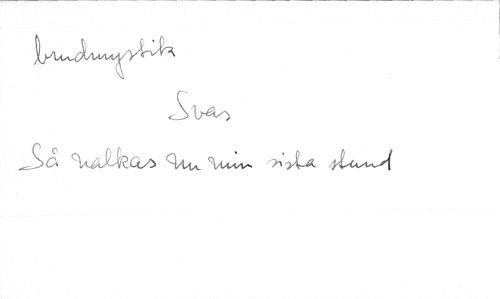 brudmystik
Svas
Så nalkas nu min sista stund